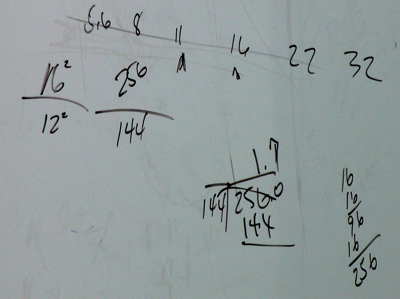 5.6 8 11 16 22 32
16² 256
12² 144
1.7
144 2560
144
16
16
96
16
256